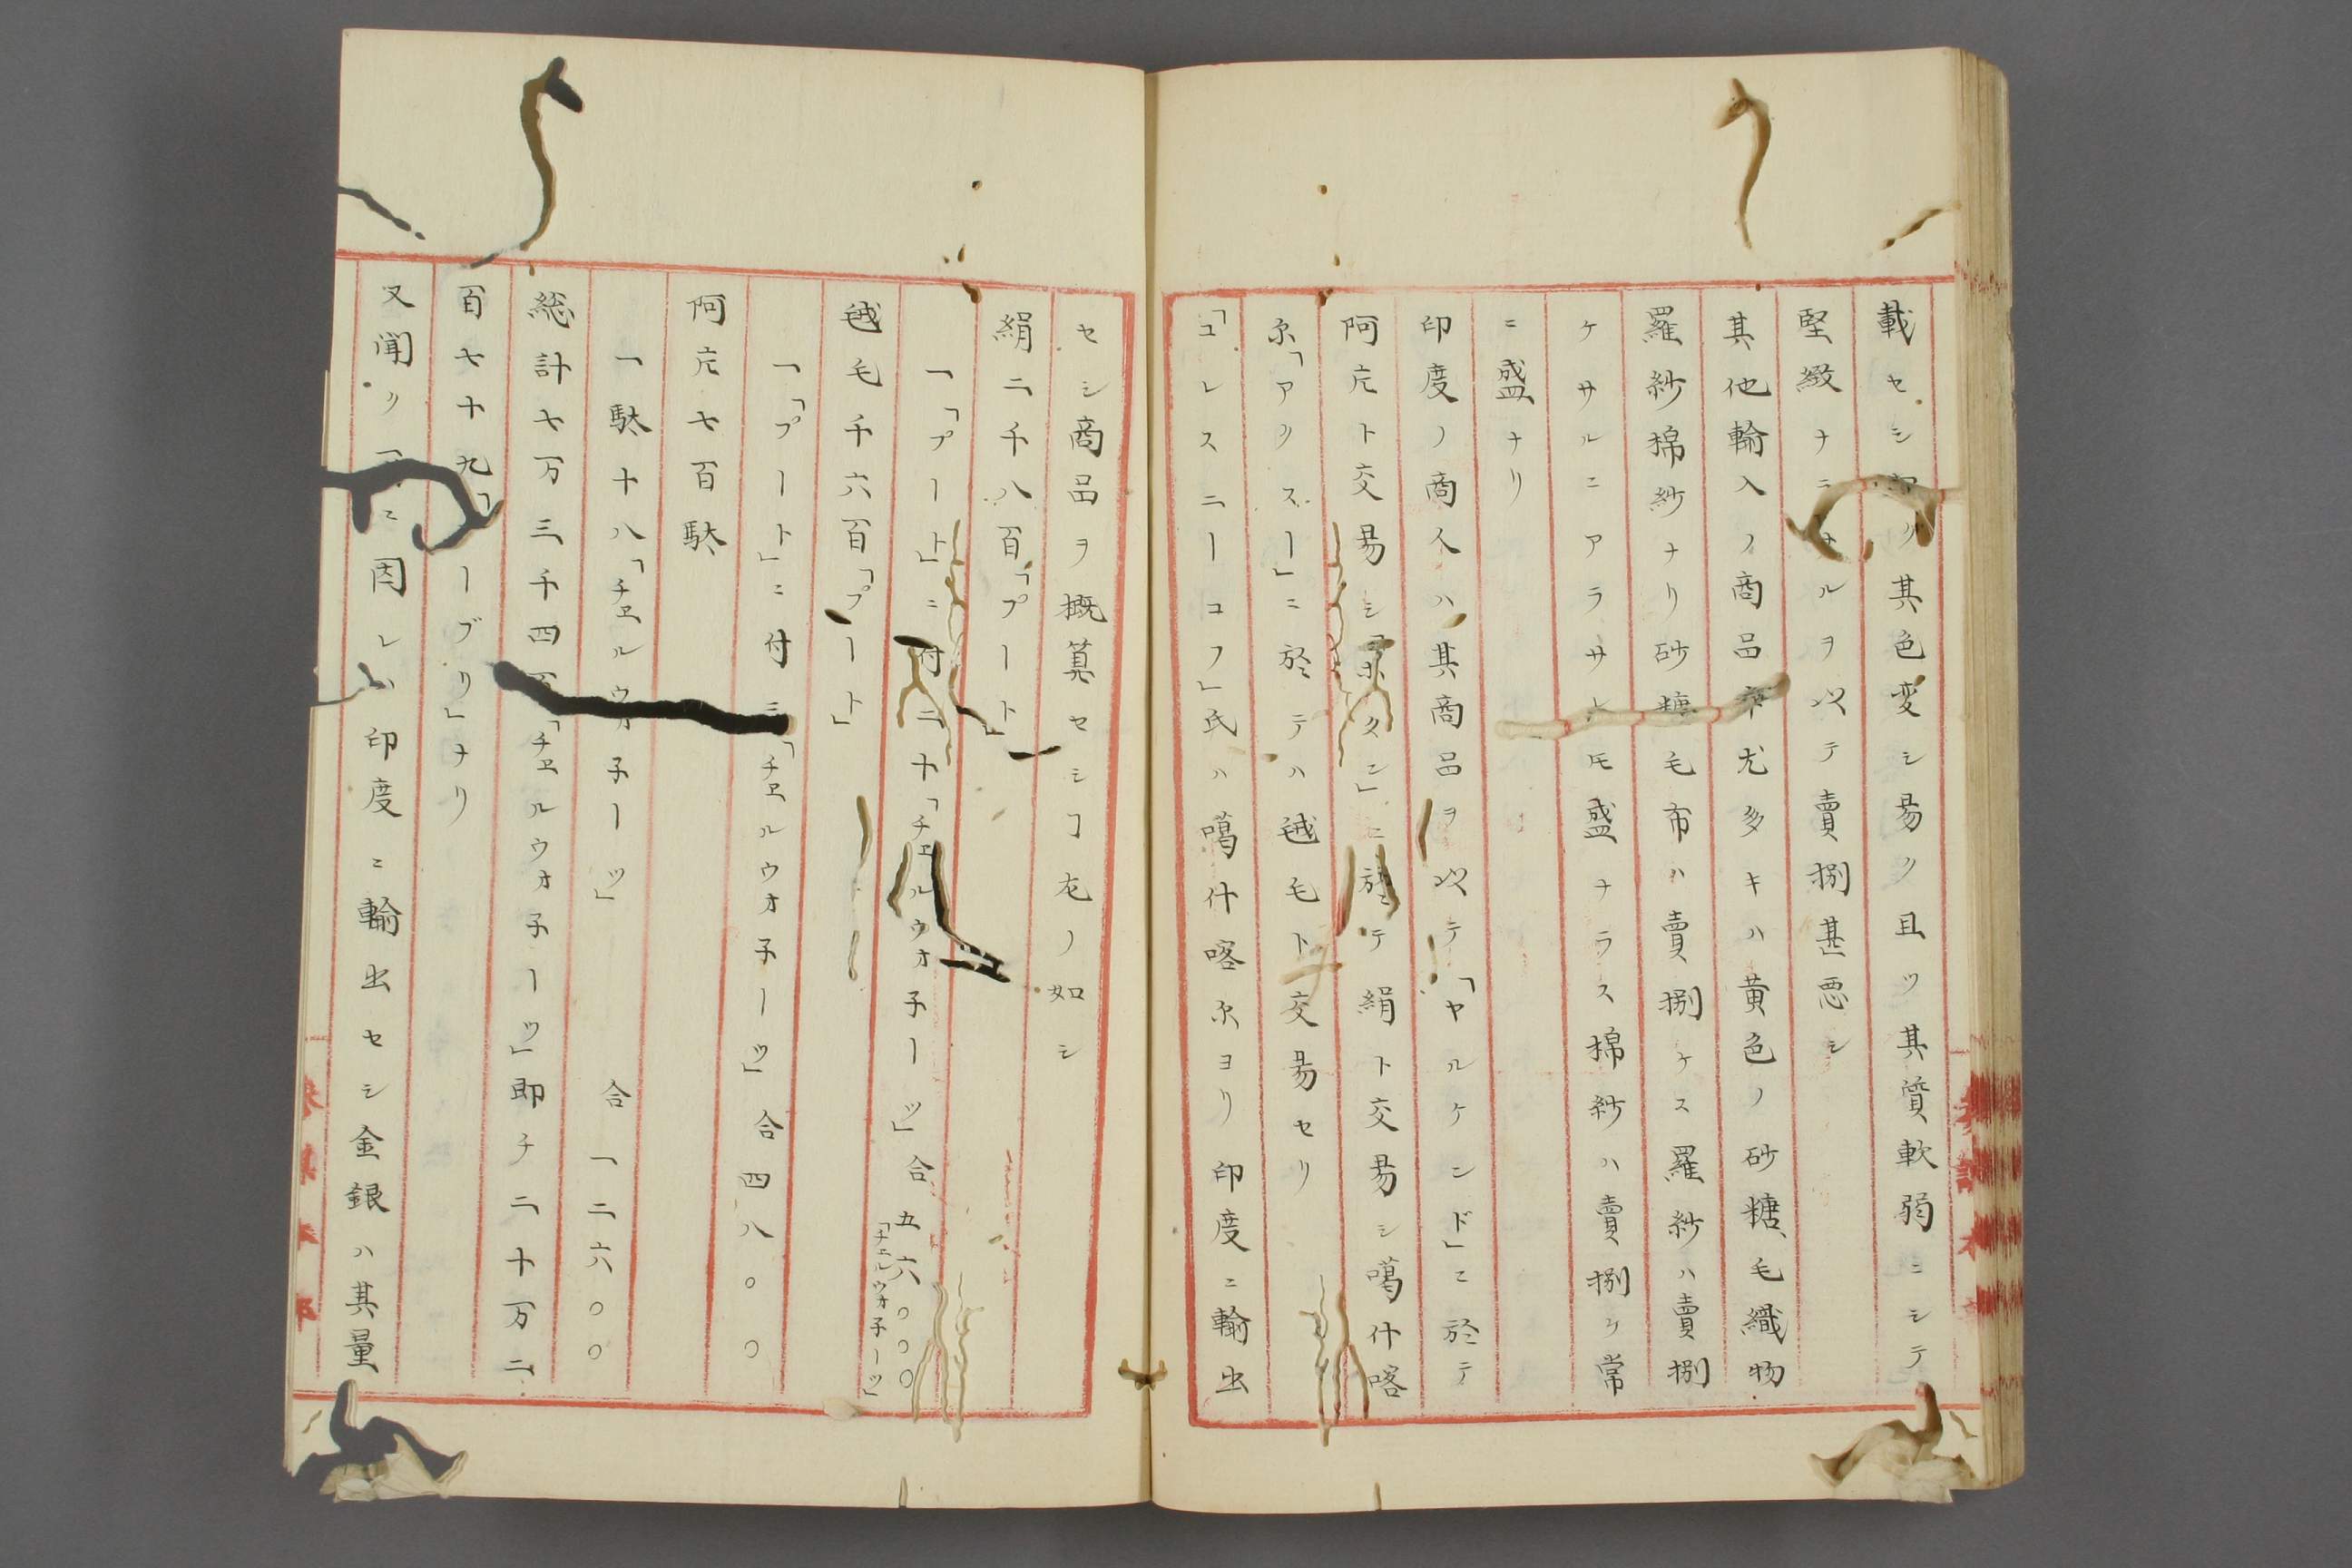 載セシ如ク其色変シ易ク且ツ其質軟弱ニシテ
堅緻ナラサルヲ以テ賣捌甚悪シ
其他輸入ノ商品中尤多キハ黄色ノ砂糖、毛織物
羅紗棉紗ナリ砂糖毛布ハ賣捌ケス羅紗ハ賣捌
ケサルニアラサレ𪜈盛ナラス棉紗ハ賣捌ケ常
ニ盛ナリ
印度ノ商人ハ其商品ヲ以テ「ヤルケンド」ニ於テ
阿片ト交易シ「ホタン」ニ於テ絹ト交易シ噶什喀
尓「アクスー」ニ於テハ毧毛ト交易セリ
「コレスニーコフ」氏ハ噶什喀尓ヨリ印度ニ輸出
セシ商品ヲ概算セシヿ左ノ如シ
絹二千八百「プート」
一「プート」ニ付二十「チヱルウオ子ーツ」合五六〇〇〇「チヱルウオ子ーツ」
毧毛千六百「プート」
一「プート」ニ付三「チヱルウオ子ーツ」合四八〇〇
阿片七百駄
一駄十八「チヱルウオ子ーツ」 合一二六〇〇
総計七万三千四百「チヱルウオ子ーツ」即チ二十万二
百七十九「ーブリ」ナリ
又聞ク ニ因レハ印度ニ輸出セシ金銀ハ其量